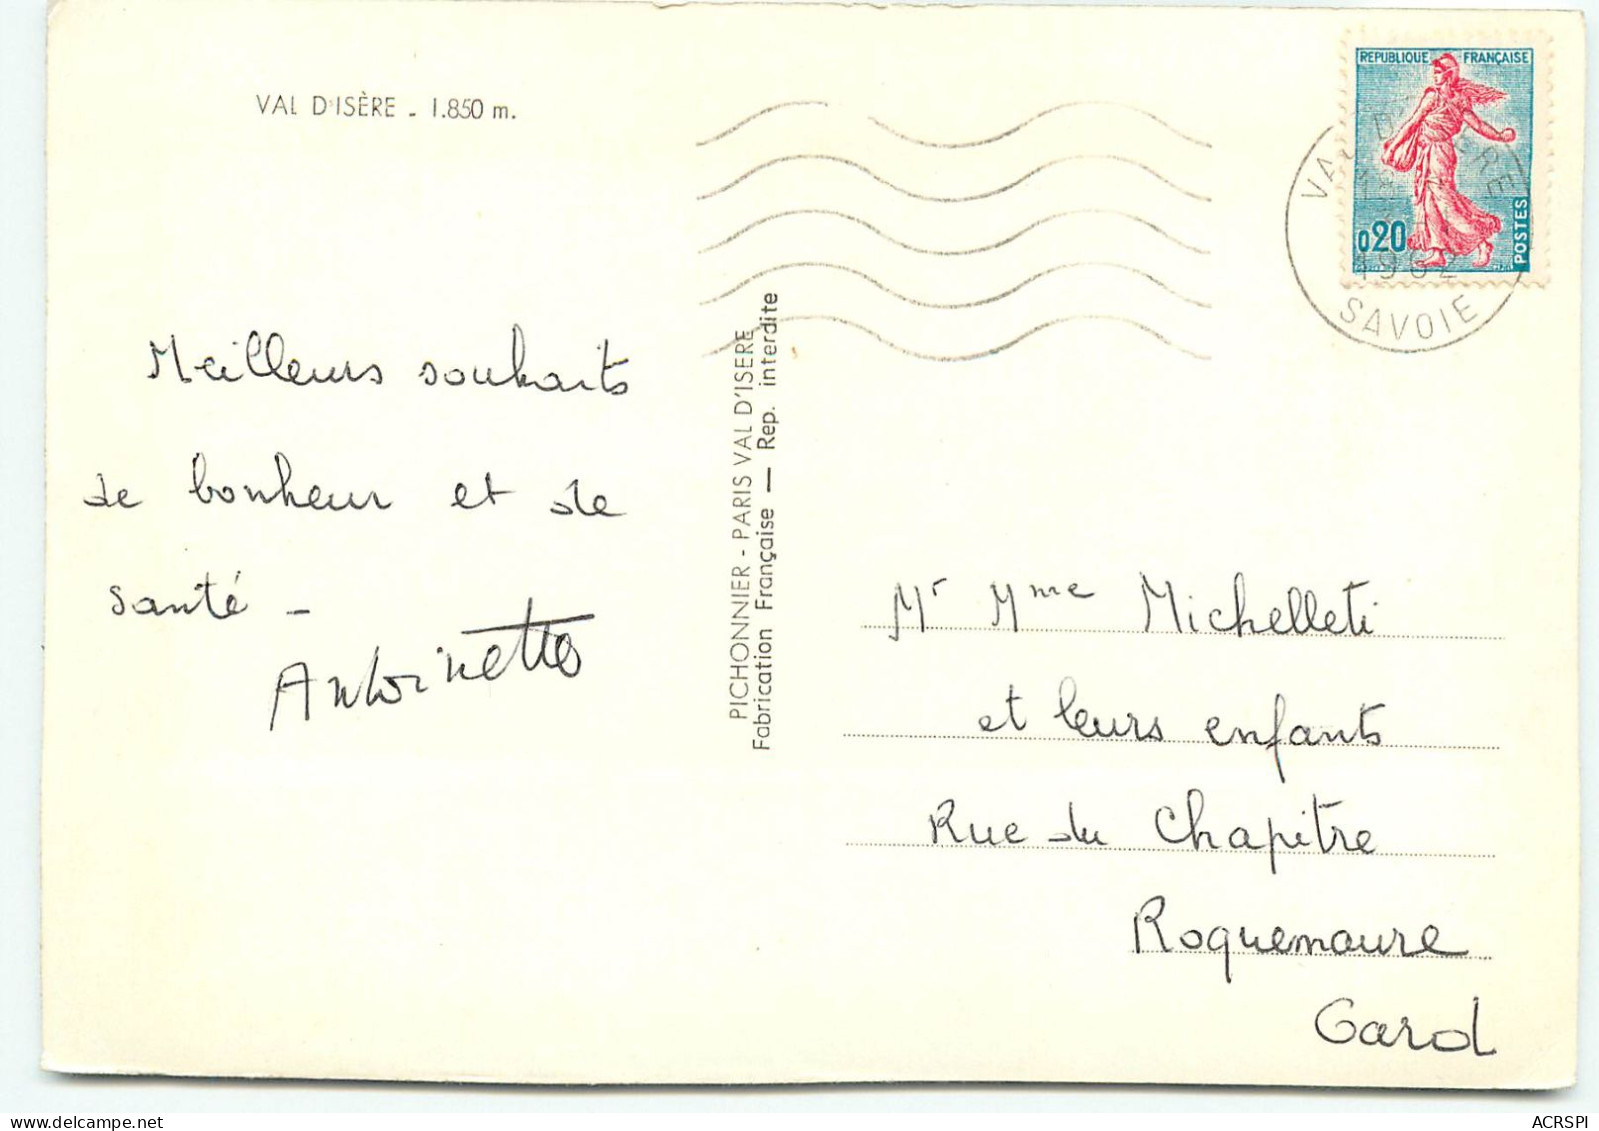 VAL D'ISÈRE - 1.850 m.
REPUBLIQUE FRANÇAISE
0,20
POSTES
1962
SAVOIE
Meilleurs souhaits
de bonheur et de
santé -
Antoinette
PICHONNIER - PARIS VAL D'ISERE
Fabrication Française — Rep. interdite
Mr Mme Micheletti
et leurs enfants
Rue du Chapitre
Roquemaure
Gard
ACRSPI